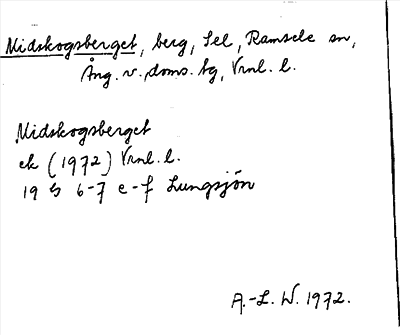 Midskogsberget, berg, Sel, Ramsele sn,
Ång. v. doms. tg, Vrnl. l.
Midskogsberget
ek (1972) Vrnl. l.
19 G 6-7 e-f Lungsjön
A.-L. W. 1972.